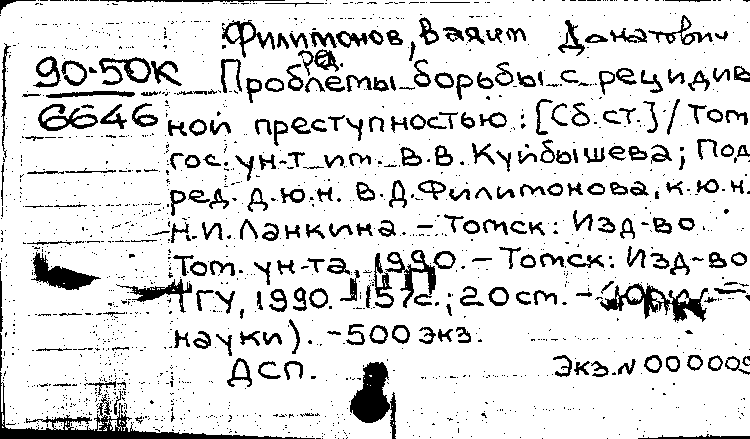 Филимонов, Вадим Донатович
ред.
90-50К Проблемы борьбы с рецидив
6646 ной преступностью: [Сб. ст.] / Том.
гос. ун-т им. В.В. Куйбышева; Под
ред. д.ю.н. В.Д. Филимонова, к.ю.н.
Н.И. Ланкина. - Томск: Изд-во
Том. ун-та, 1990. - Томск: Изд-во
ТГУ, 1990. - 157с.; 20 см. -
науки). - 500 экз.
ДСП. Экз. N 000009